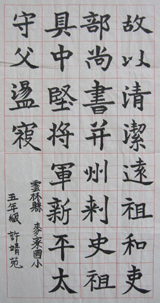 故以清潔遠祖和吏
部尚書并州刺史祖
具中堅將軍新平太
守父盪寇
雲林縣 麥寮國小
五年級 許靖苑